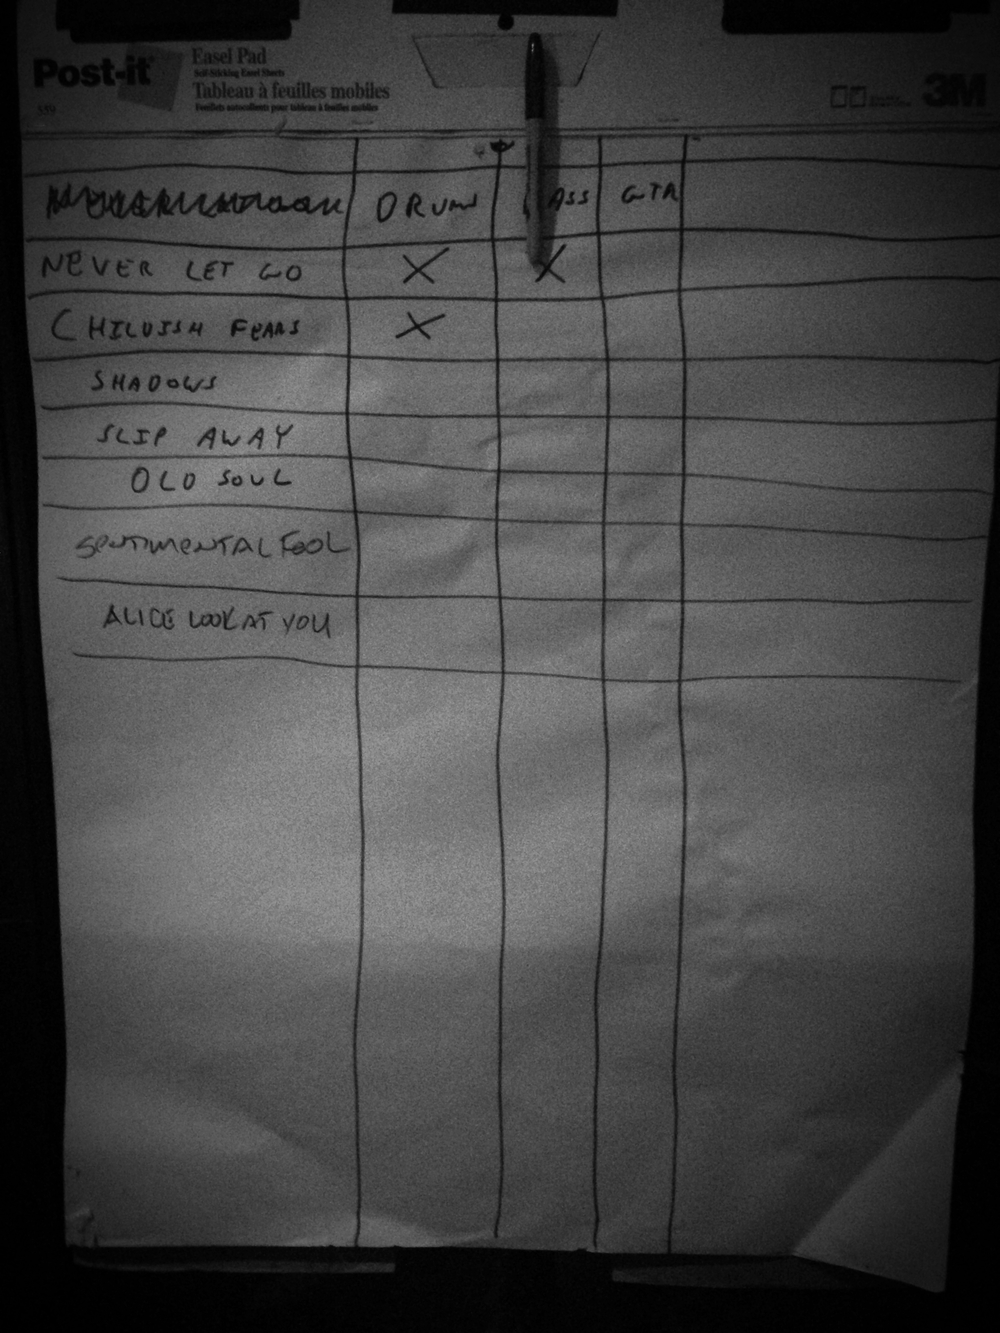 Post-it
Easel Pad
Self-Sticking Easel Sheets
Tableau à feuilles mobiles
Feuilles autocollantes pour tableau à feuilles mobiles
559
3M
DRUMS ASS GTR
NEVER LET GO X X
CHILDISH FEARS X
SHADOWS
SLIP AWAY
OLD SOUL
SENTIMENTAL FOOL
ALICE LOOK AT YOU